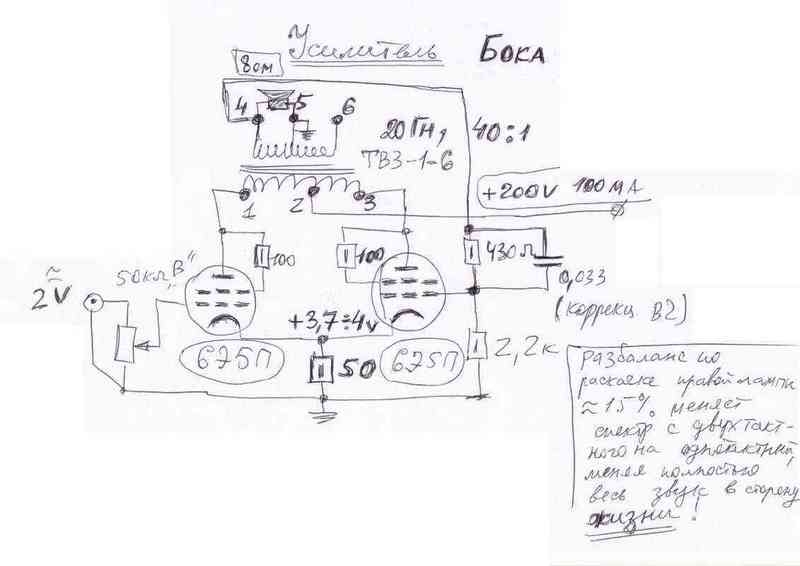 Усилитель Бока
8ом
4 5 6
20Гн, 40:1
ТВЗ-1-6
1 2 3
+200V 100мА
100
100
430Л
0,033
(коррекц В2)
50кл„В"
≈
2V
+3,7÷4v
6П
6П
50
2,2к
Разбаланс по
раскачке правой лампы
≈15% меняет
спектр с двухтакт-
ного на однотактный,
меняя полностью
весь звук в сторону
жизни!